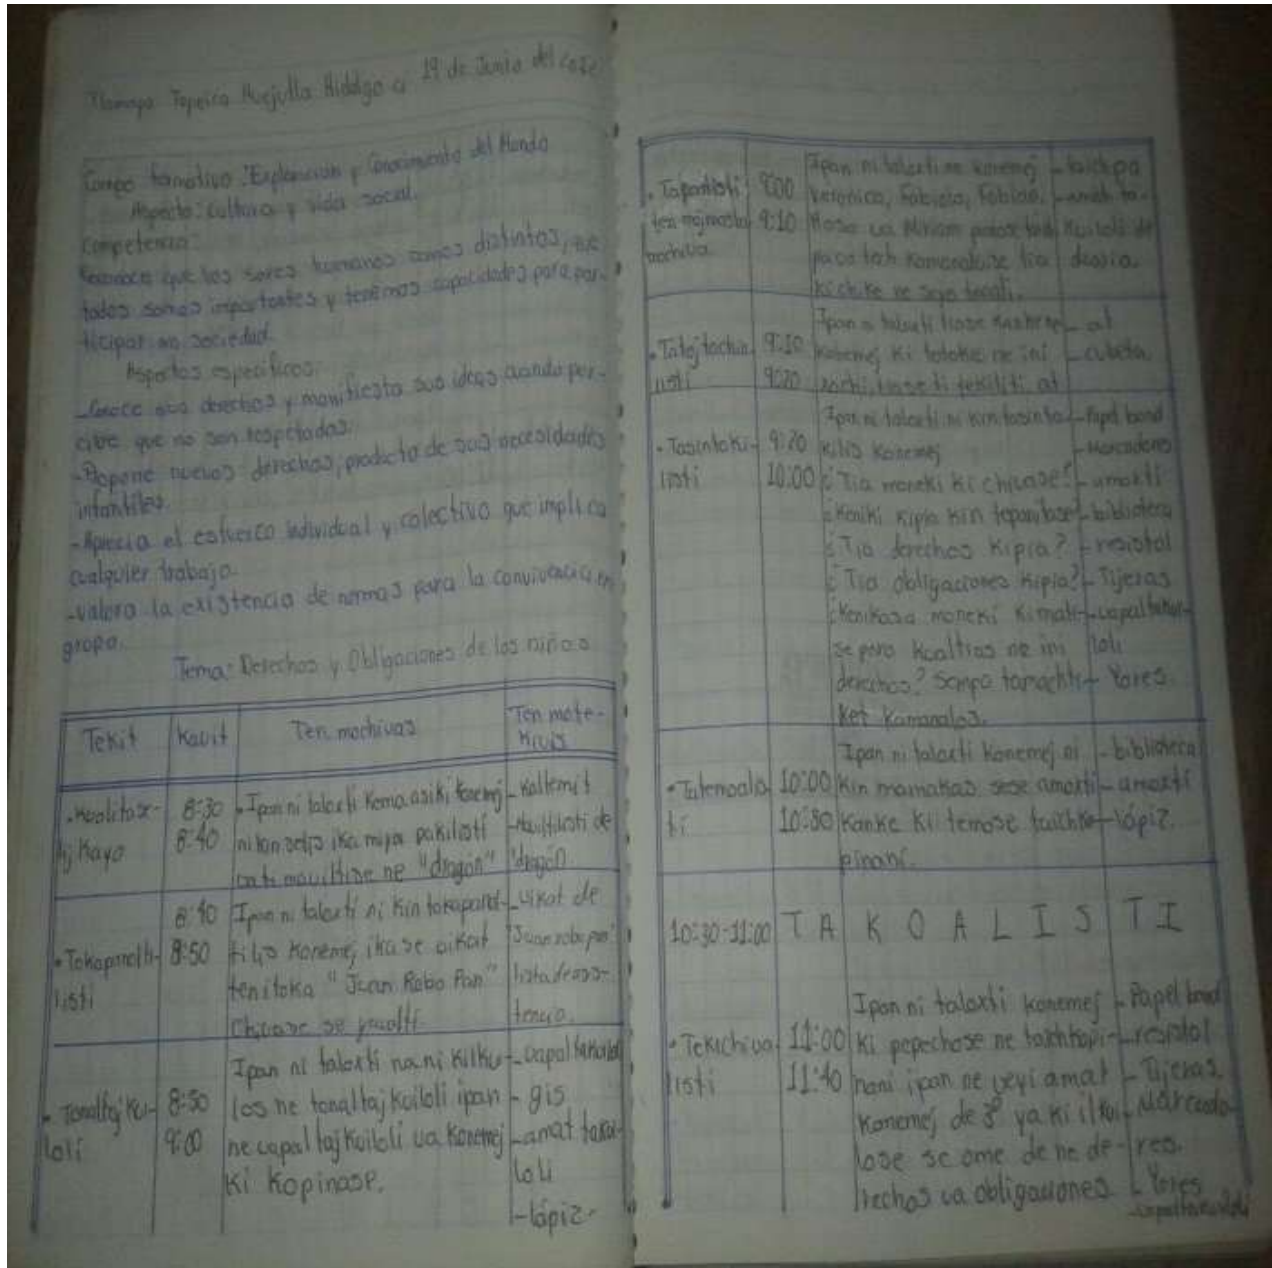 Hidalgo a 19 de Junio del
Campo formativo: Exploración y Conocimiento del Mundo
Aspecto: cultura y vida social.
Competencia:
Reconoce que los seres humanos somos distintos, que
todos somos importantes y tenemos capacidades para par-
ticipar en sociedad.
Aspectos especificos:
-Conoce sus derechos y manifiesta sus ideas cuando per-
cibe que no son respetados.
-Propone nuevos derechos, producto de sus necesidades
infantiles.
-Aprecia el esfuerzo individual y colectivo que implica
cualquier trabajo.
-valora la existencia de normas para la convivencia en
grupo.
Tema: Derechos y Obligaciones de los niños
Tekit
Kavit
Ten mochivas
Ten mote-
kivis
8:30
8:40
Ipan ni talaxti kema asiki konemej
ika miya pakilisti
ne "dragón"
-kaltemit
de
"dragón"
• Tokapanolti-
listi
8:40
8:50
Ipan ni talaxti ni kin tokapanol-
tilis konemej ika se vikat
tenitoka "Juan Robo Pan"
Chicase se
-vikat de
"Juan robo pan"
lista de asis-
tencia.
• Tonaltajkui-
loli
8:50
9:00
Ipan ni talaxti na ni kilku-
los ne tonaltajkuiloli ipan
ne vapaltajkuiloli va konemej
ki kopinase.
- gis
-amat takui-
loli
-lápiz-
9:00
9:10
Ipan ni talaxti ne konemej
Veronica, Fabiola, Fabian,
va Miriam
kichike ne seyo tonali.
-taichpo
-amat ta-
kuiloli de
diaria.
• Tatojtachia
listi
9:10
9:20
Ipan ni talaxti
konemej ki tatoke ne ini
xochi, ti tekiliti at
- at
- cubeta
• Tasintoki-
listi
9:20
10:00
Ipan ni talaxti ni kin tasinto-
kilis konemej
¿Tia moneki ki chivase?
¿Tia derechos kipia?
¿Tia obligaciones kipia?
moneki kimati-
se para kualtias ne ini
derechos? Sampa tamachti-
ket kamanalos.
-Papel bond
-Marcadores
-amoxti
-biblioteca
-resistol
-Tijeras
-vapaltakui-
loli
- Yores.
10:00
10:30
Ipan ni talaxti konemej ni
kin mamakas sese amoxti
kanke ki temose taichko-
pinani.
- biblioteca
- amoxti
-lápiz.
10:30-11:00 TAKOALISTI
• Tekichiva
listi
11:00
11:40
Ipan ni talaxti konemej
ki pepechose ne taichkopi-
nani ipan ne veyi amat
konemej de 3º ya ki ilkui-
lose se ome de ne de-
rechos va obligaciones.
- Papel bond
-resistol
- Tijeras
- Marcado-
res.
- Yores